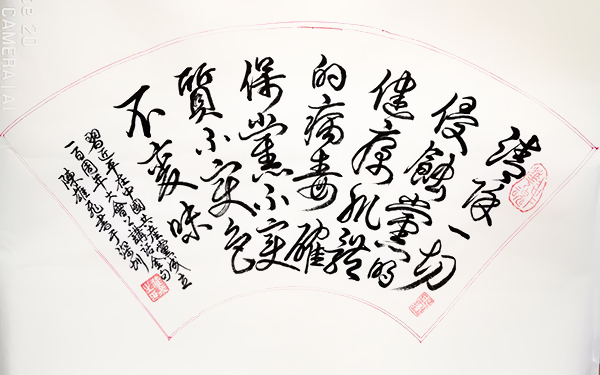 清除一切
侵蝕黨的
健康肌體
的病毒確
保黨不變
質不變色
不變味
習近平在中國共產黨成立
一百周年大會上講話金句
陳雄書于深圳
20
CAMERA | AI